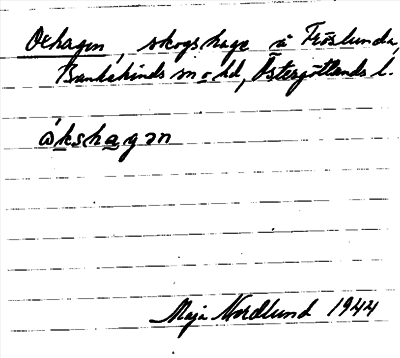 Oxhagen, skogshage å Fröslunda,
Bankekinds sn o hd, Östergötlands l.
ókshagən
Maja Nordlund 1944